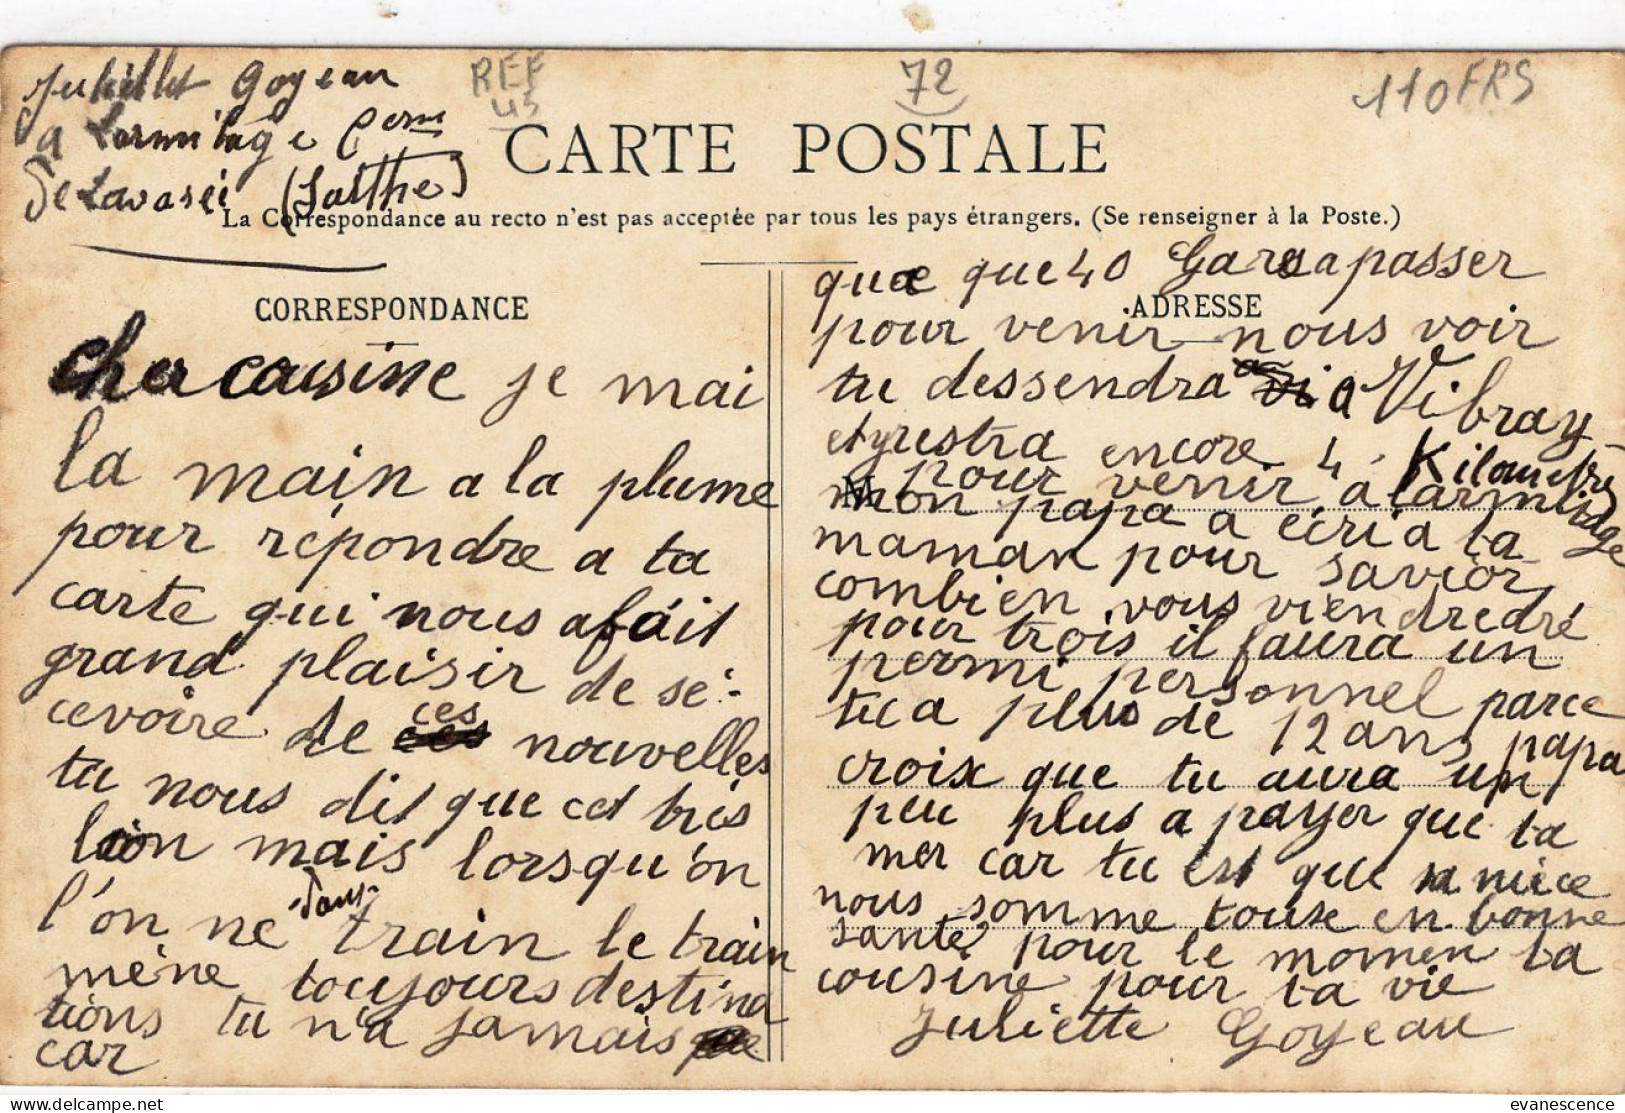 Juliette Goyeau
REF
72
110 FRS
a Larmitage Cerne
US
de Lavaréi (Sarthe)
CARTE POSTALE
La Correspondance au recto n'est pas acceptée par tous les pays étrangers. (Se renseigner à la Poste.)
CORRESPONDANCE
cher cousine je mai
la main a la plume
pour répondre a ta
carte qui nous a fait
grand plaisir de sé-
cevoire de ces nouvelles
tu nous dit que cet très
loin mais lorsqu'on
l'on ne dans train le train
mène toujours destina
tions tu n'a jamais
car
que que 40 Gares a passer
ADRESSE
pour venir nous voir
tu dessendra a Vibray-
et y restra encore 4 Kilomètres
pour venir a larmitage
M
mon papa a écri a ta
maman pour savior
combien vous viendredré
pour trois il faura un
permi personnel parce
tu a plus de 12 ans papa
croix que tu aura un
peu plus a payer que ta
mer car tu est que sa nièce
nous somme tous en bonne
santé pour le momen ta
cousine pour ta vie
Juliette Goyeau
evanescence